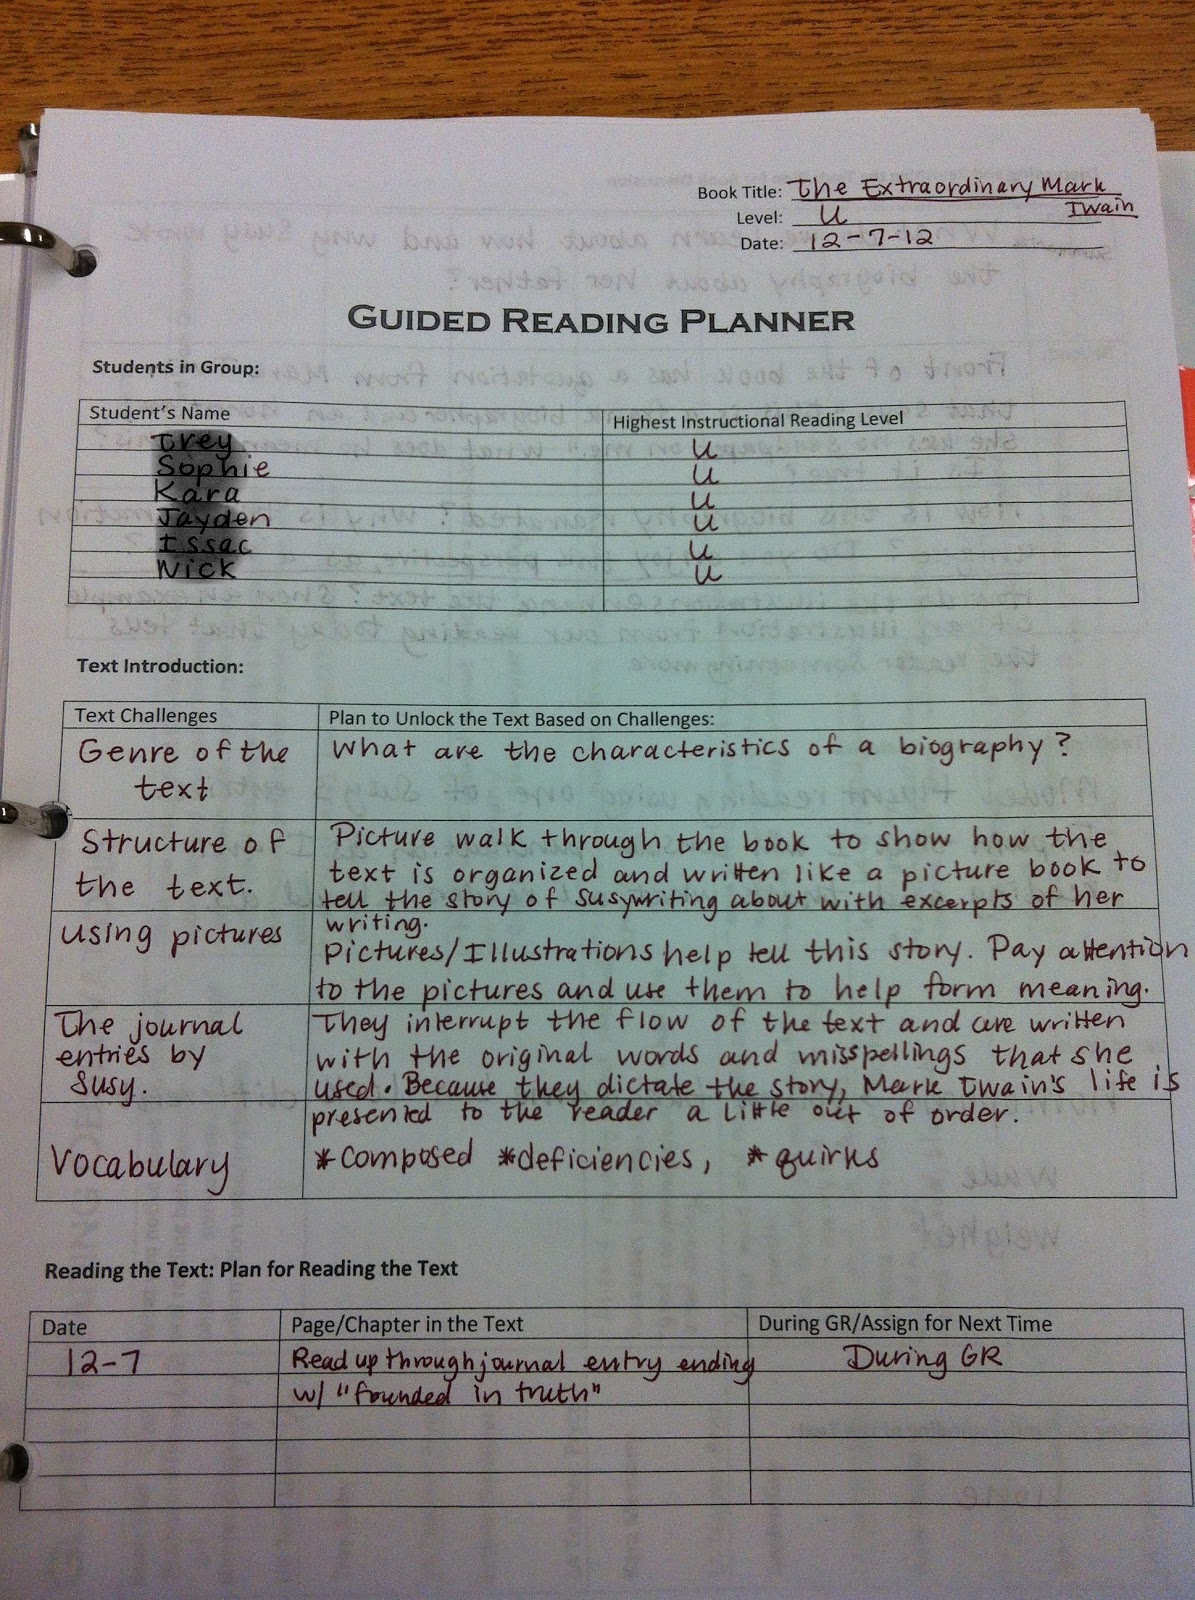 Book Title: The Extraordinary Mark
Twain
Level: U
Date: 12-7-12
GUIDED READING PLANNER
Students in Group:
Student's Name Highest Instructional Reading Level
Trey U
Sophie U
Kara U
Jayden U
Issac U
Nick U
Text Introduction:
Text Challenges Plan to Unlock the Text Based on Challenges:
Genre of the What are the characteristics of a biography?
text
Structure of Picture walk through the book to show how the
the text. text is organized and written like a picture book to
tell the story of Susy writing about with excerpts of her
writing.
using pictures Pictures/Illustrations help tell this story. Pay attention
to the pictures and use them to help form meaning.
The journal They interrupt the flow of the text and are written
entries by with the original words and misspellings that she
Susy. used. Because they dictate the story, Mark Twain's life is
presented to the reader a little out of order.
Vocabulary *composed *deficiencies, *quirks
Reading the Text: Plan for Reading the Text
Date Page/Chapter in the Text During GR/Assign for Next Time
12-7 Read up through journal entry ending During GR
w/ "founded in truth"